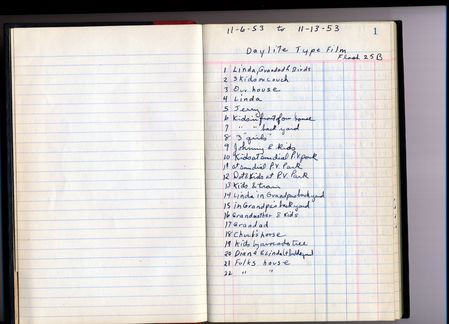 11-6-53 to 11-13-53
1
Daylite Type Film
Flash 25B
1 Linda, Grandad & Birds
2 3 Kids on Couch
3 Our house
4 Linda
5 Jerry
6 Kids in front of our house
7 " " back yard
8 3 "girls"
9 Johnny & Kids
10 Kids at sundial P.V. park
11 at sundial P.V. Park
12 Dot & Kids at P.V. Park
13 Kids & train
14 Linda in Grandpa's back yard
15 in Grandpa's back yard
16 Grandmother & Kids
17 Grandad
18 Chuck's house
19 Kids by avocado tree
20 Diane & Linda
21 Folks house
22 " "